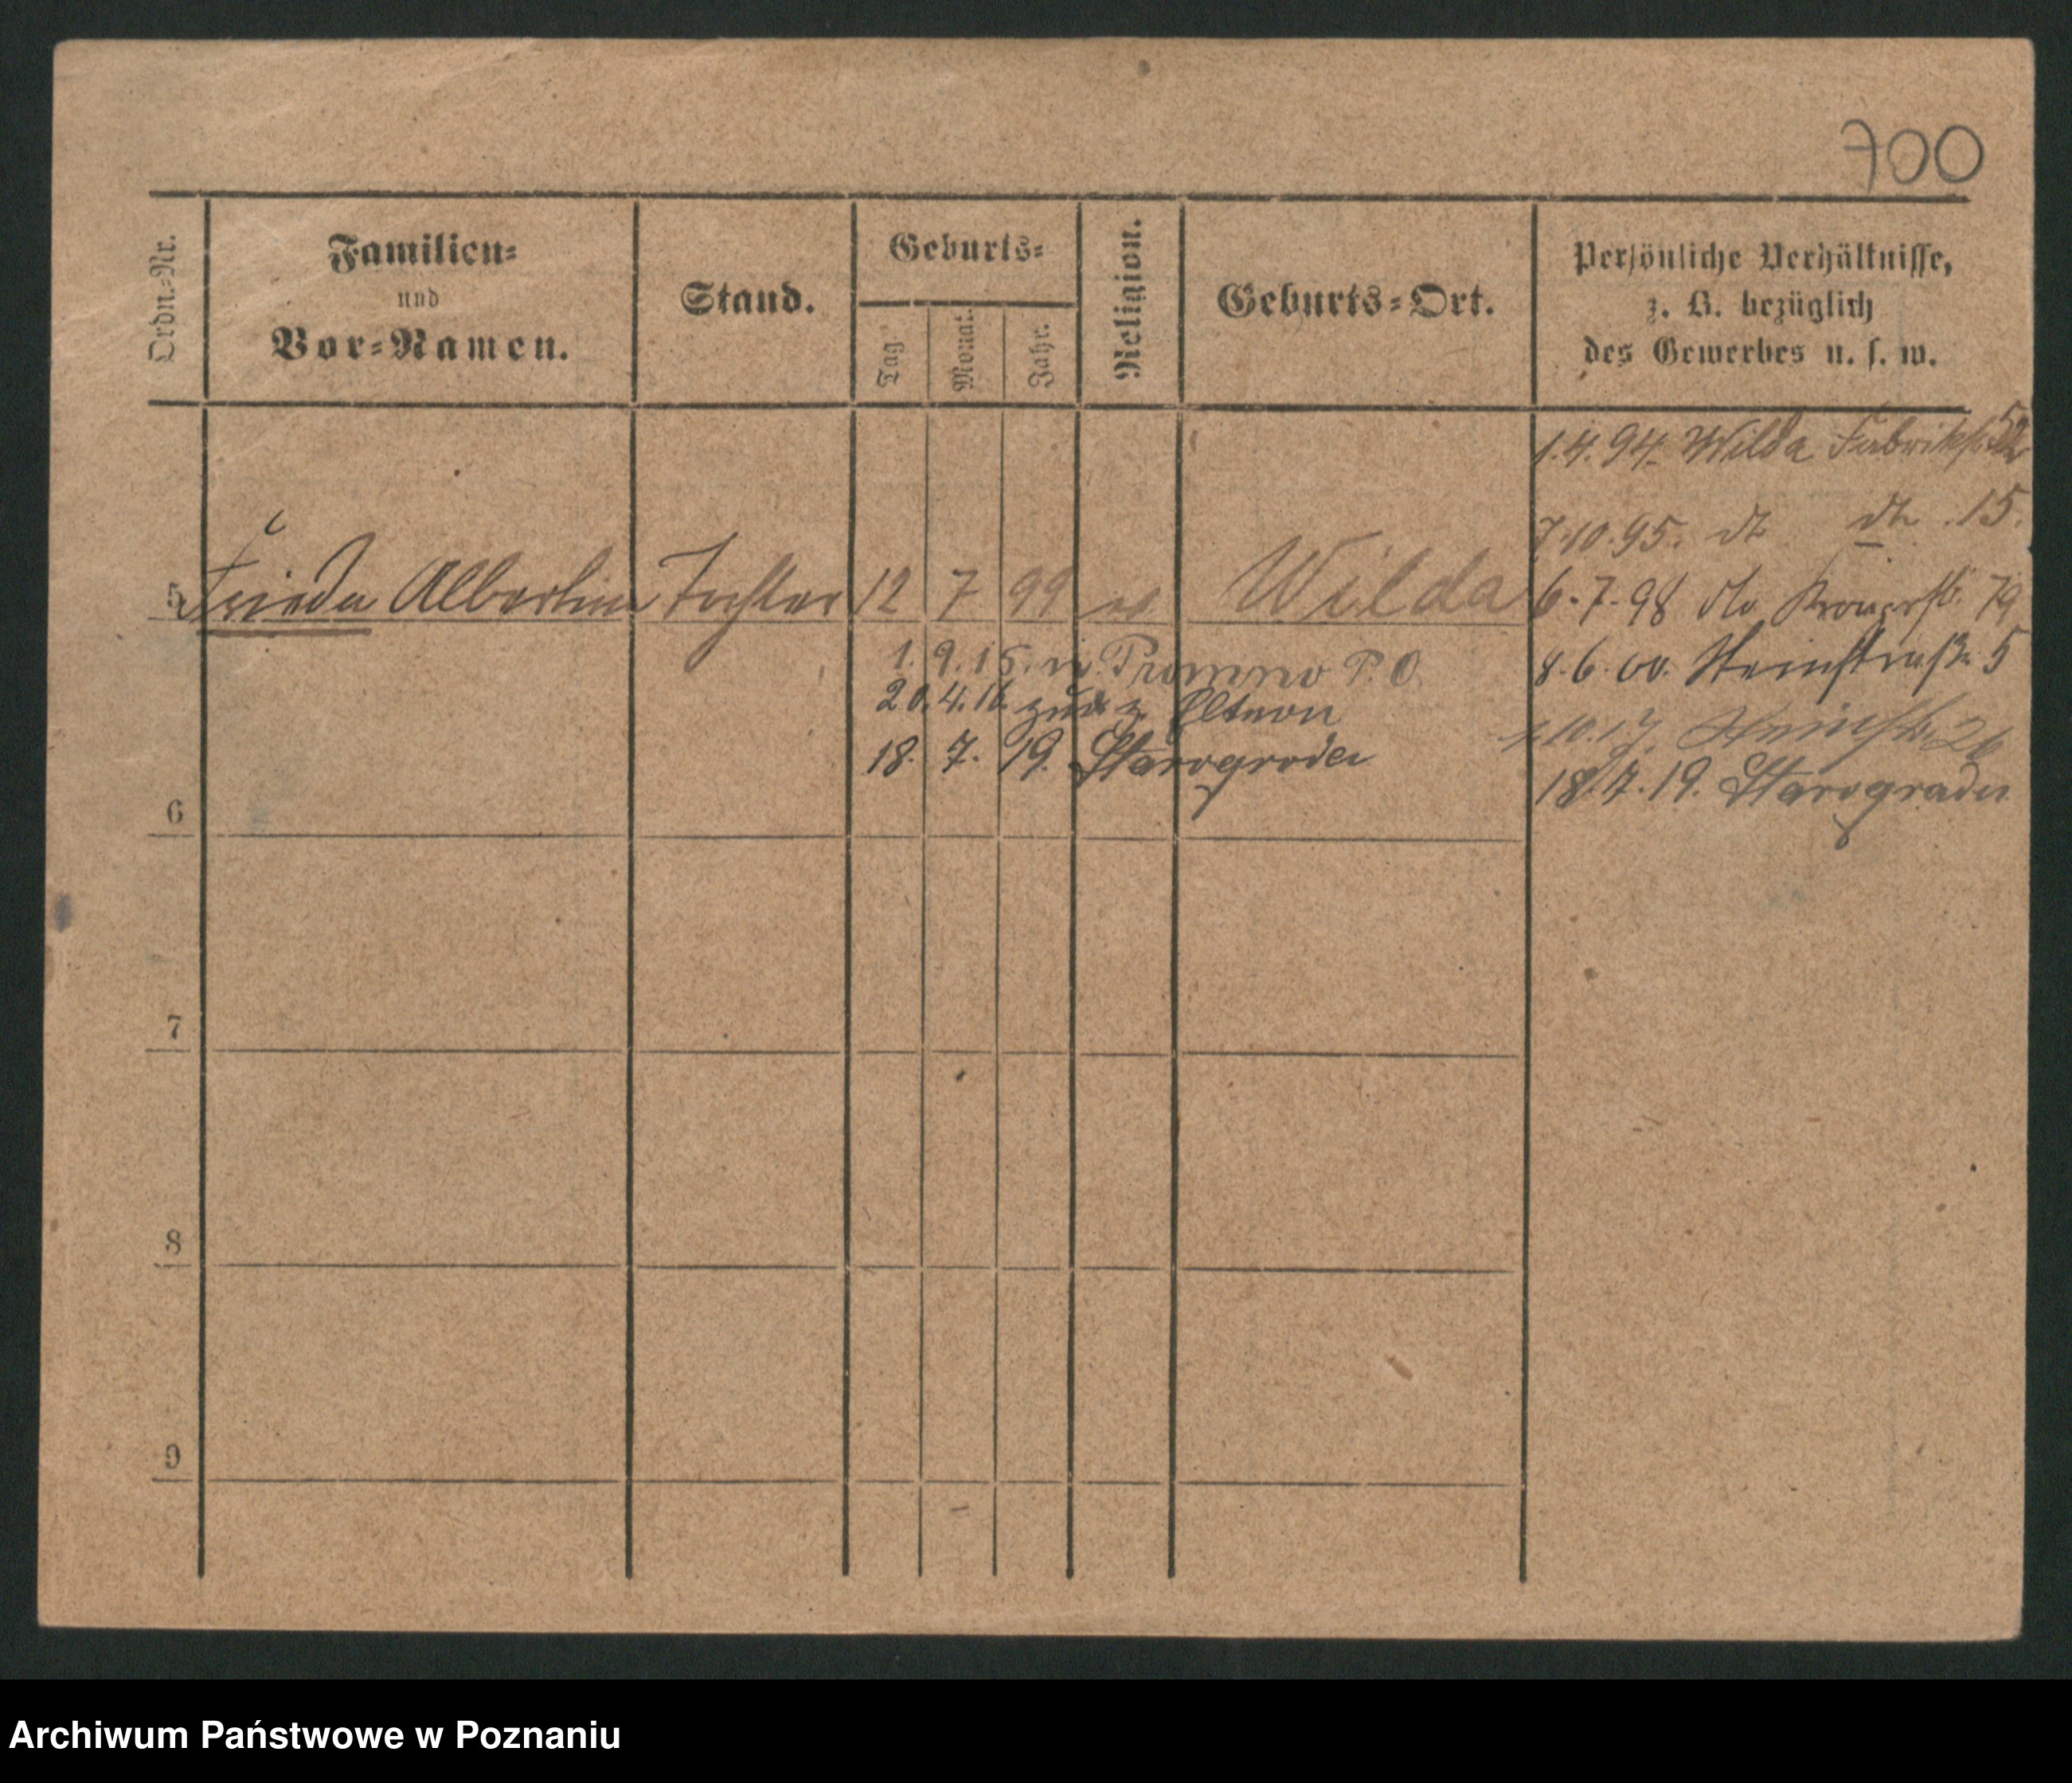 700
Ordn.-Nr.
Familien=
und
Vor=Namen.
Stand.
Geburts=
Tag.
Monat.
Jahr.
Religion.
Geburts=Ort.
Persönliche Verhältnisse,
z. B. bezüglich
des Gewerbes u. s. w.
5 Frieda Albertine Tochter 12 7 99 ev Wilda
1. 9. 15. n. Promno P. O.
20. 4. 16. zur. z. Eltern
18. 7. 19. Starogroder
1.4.94. Wilda Fabrikstr 52
7.10.95. dt dt. 15.
6-7-98 dto Kronprstr. 79
8.6.00. Steinstraße 5
10.17. Steinstr. 26
18.7.19. Starogroder
6
7
8
9
Archiwum Państwowe w Poznaniu